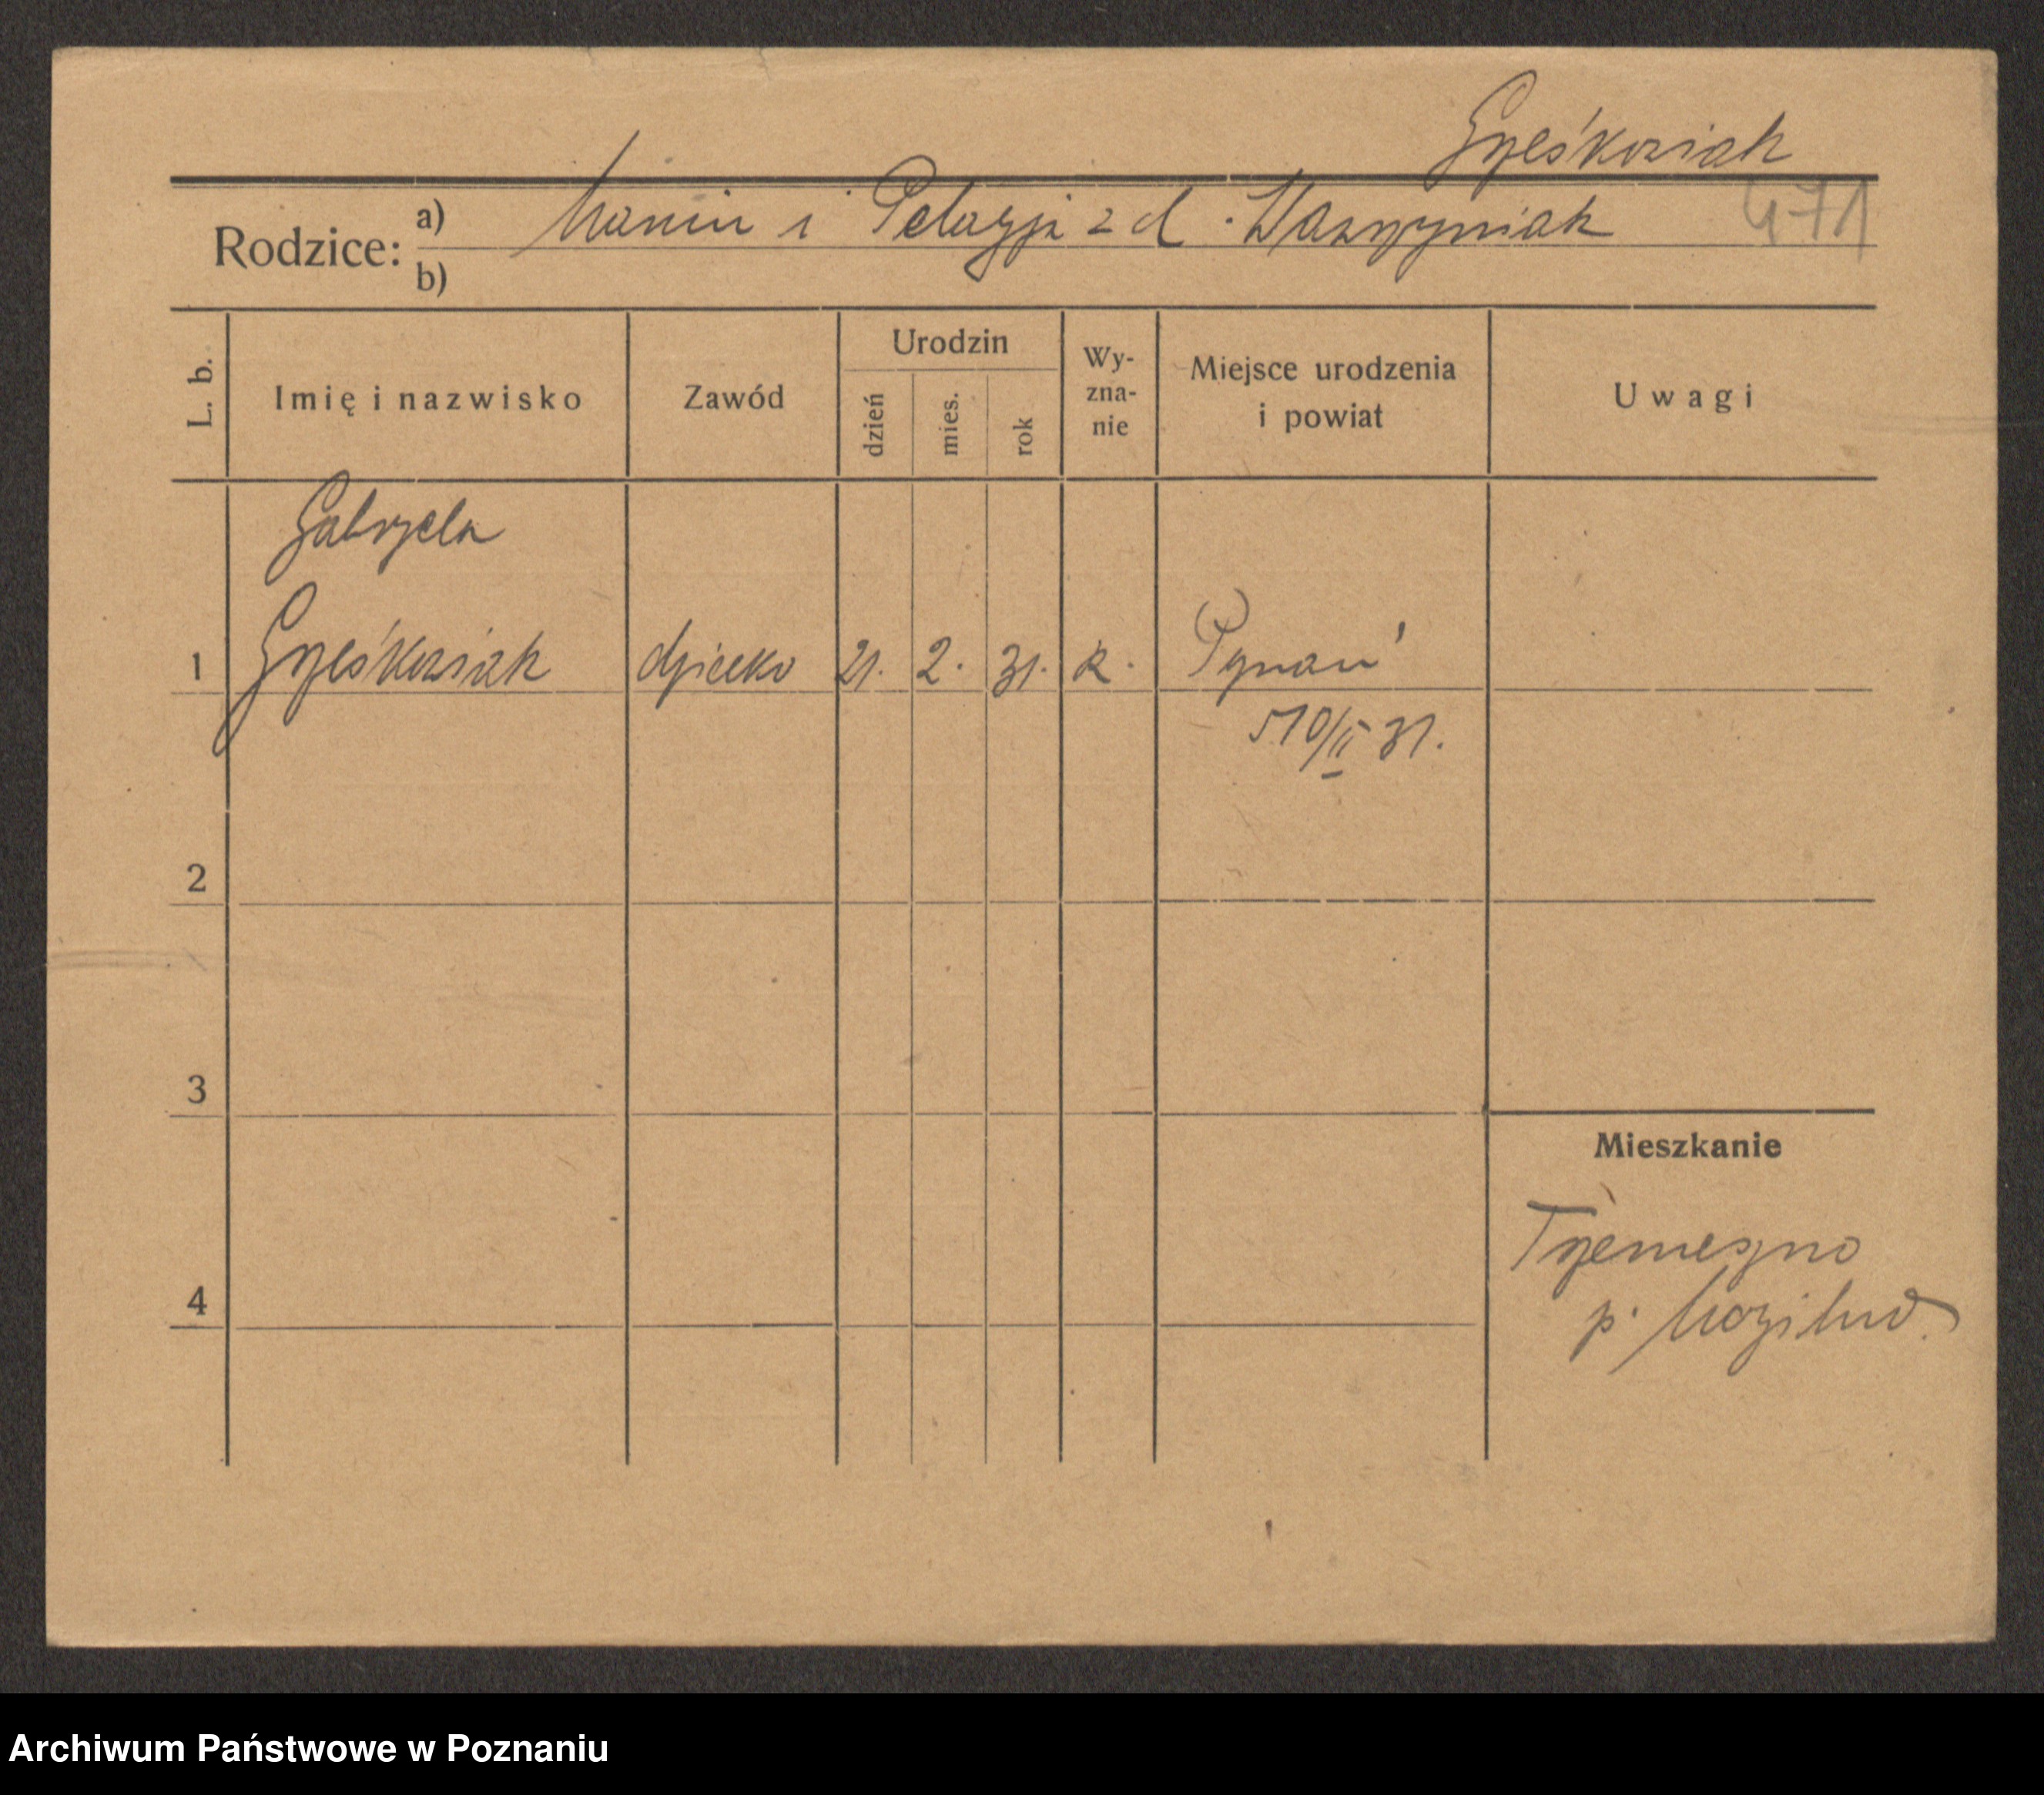 Grześkowiak
Rodzice: a) Marcin i Pelagja z d. Waszyniak 471
b)
L. b. Imię i nazwisko Zawód Urodzin dzień mies. rok Wy-zna-nie Miejsce urodzenia i powiat Uwagi
Gabryela
1 Grześkowiak dziecko 21. 2. 31. k. Poznań
510/II 31.
2
3
Mieszkanie
Trzemeszno
4
p. Mogilno.
Archiwum Państwowe w Poznaniu